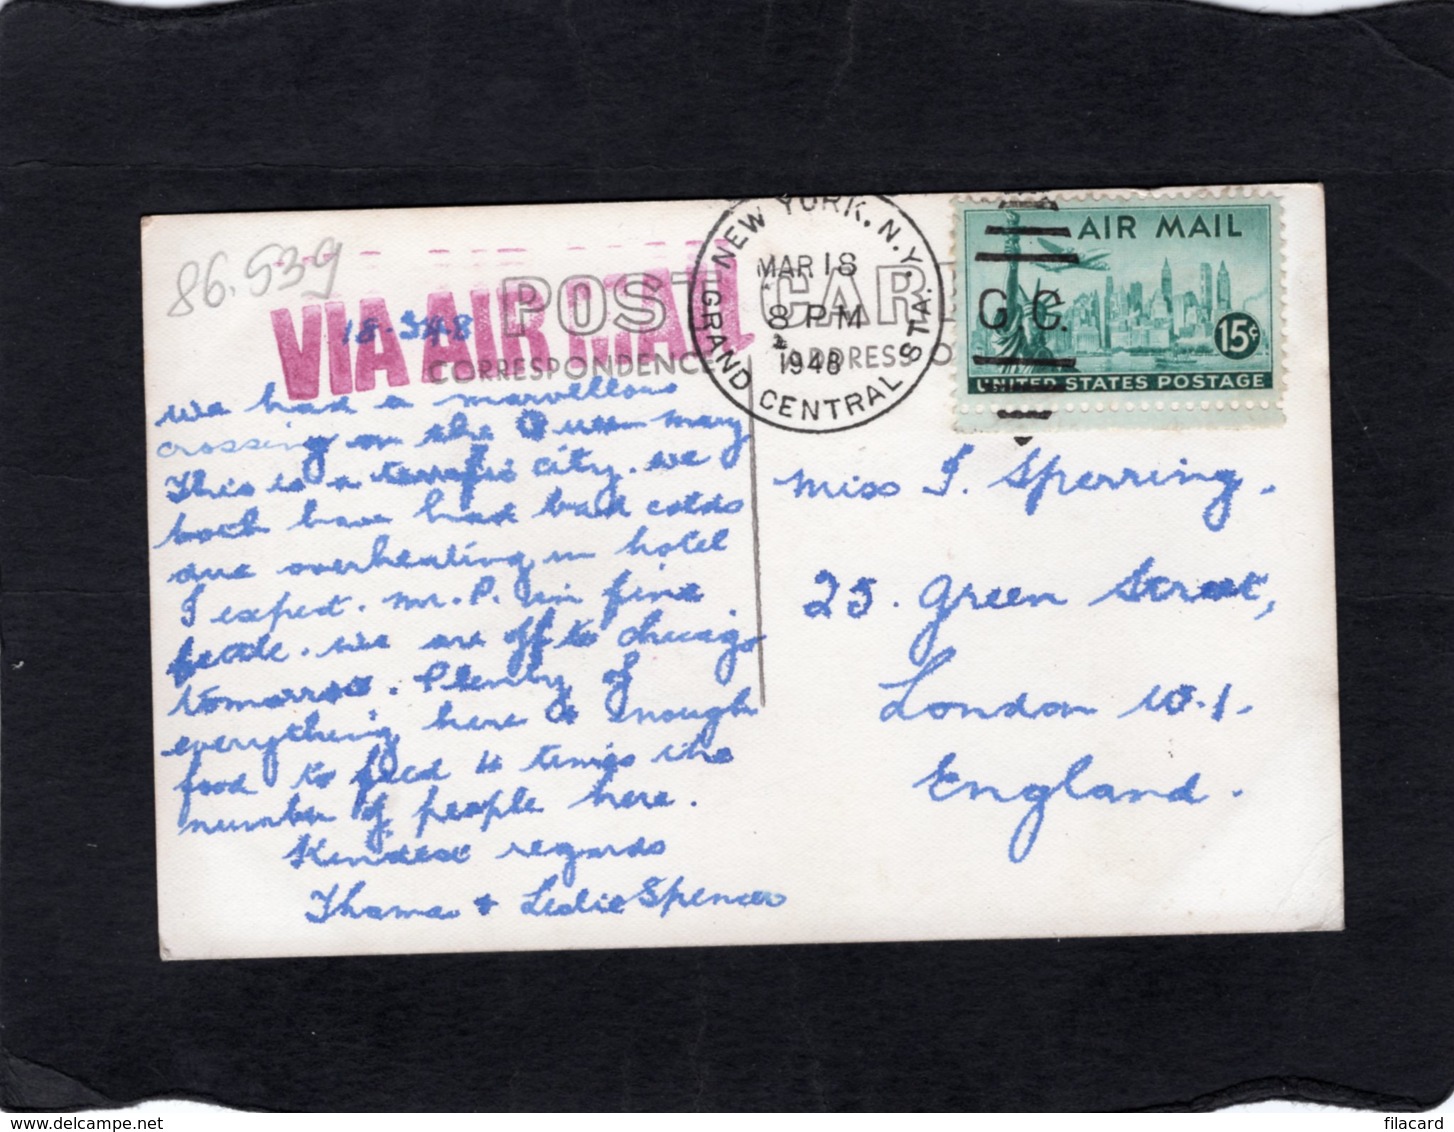 86.539
VIA AIR MAIL
18-3-48
POST CARD
CORRESPONDENCE
ADDRESS O
NEW YORK, N.Y.
GRAND CENTRAL STA.
MAR 18
8 PM
1948
AIR MAIL
G.C.
15¢
UNITED STATES POSTAGE
We had a marvellous
crossing on the Queen Mary
This is a terrific city. We
both have had bad colds
due overheating in hotel
I expect. Mr. P. in fine
fettle. We are off to Chicago
tomorrow. Plenty of
everything here & enough
food to feed 4 times the
number of people here.
Kindest regards
Thomas & Leslie Spencer
Miss I. Sperring.
25. Green Street,
London W.1.
England.
www.delcampe.net
filacard